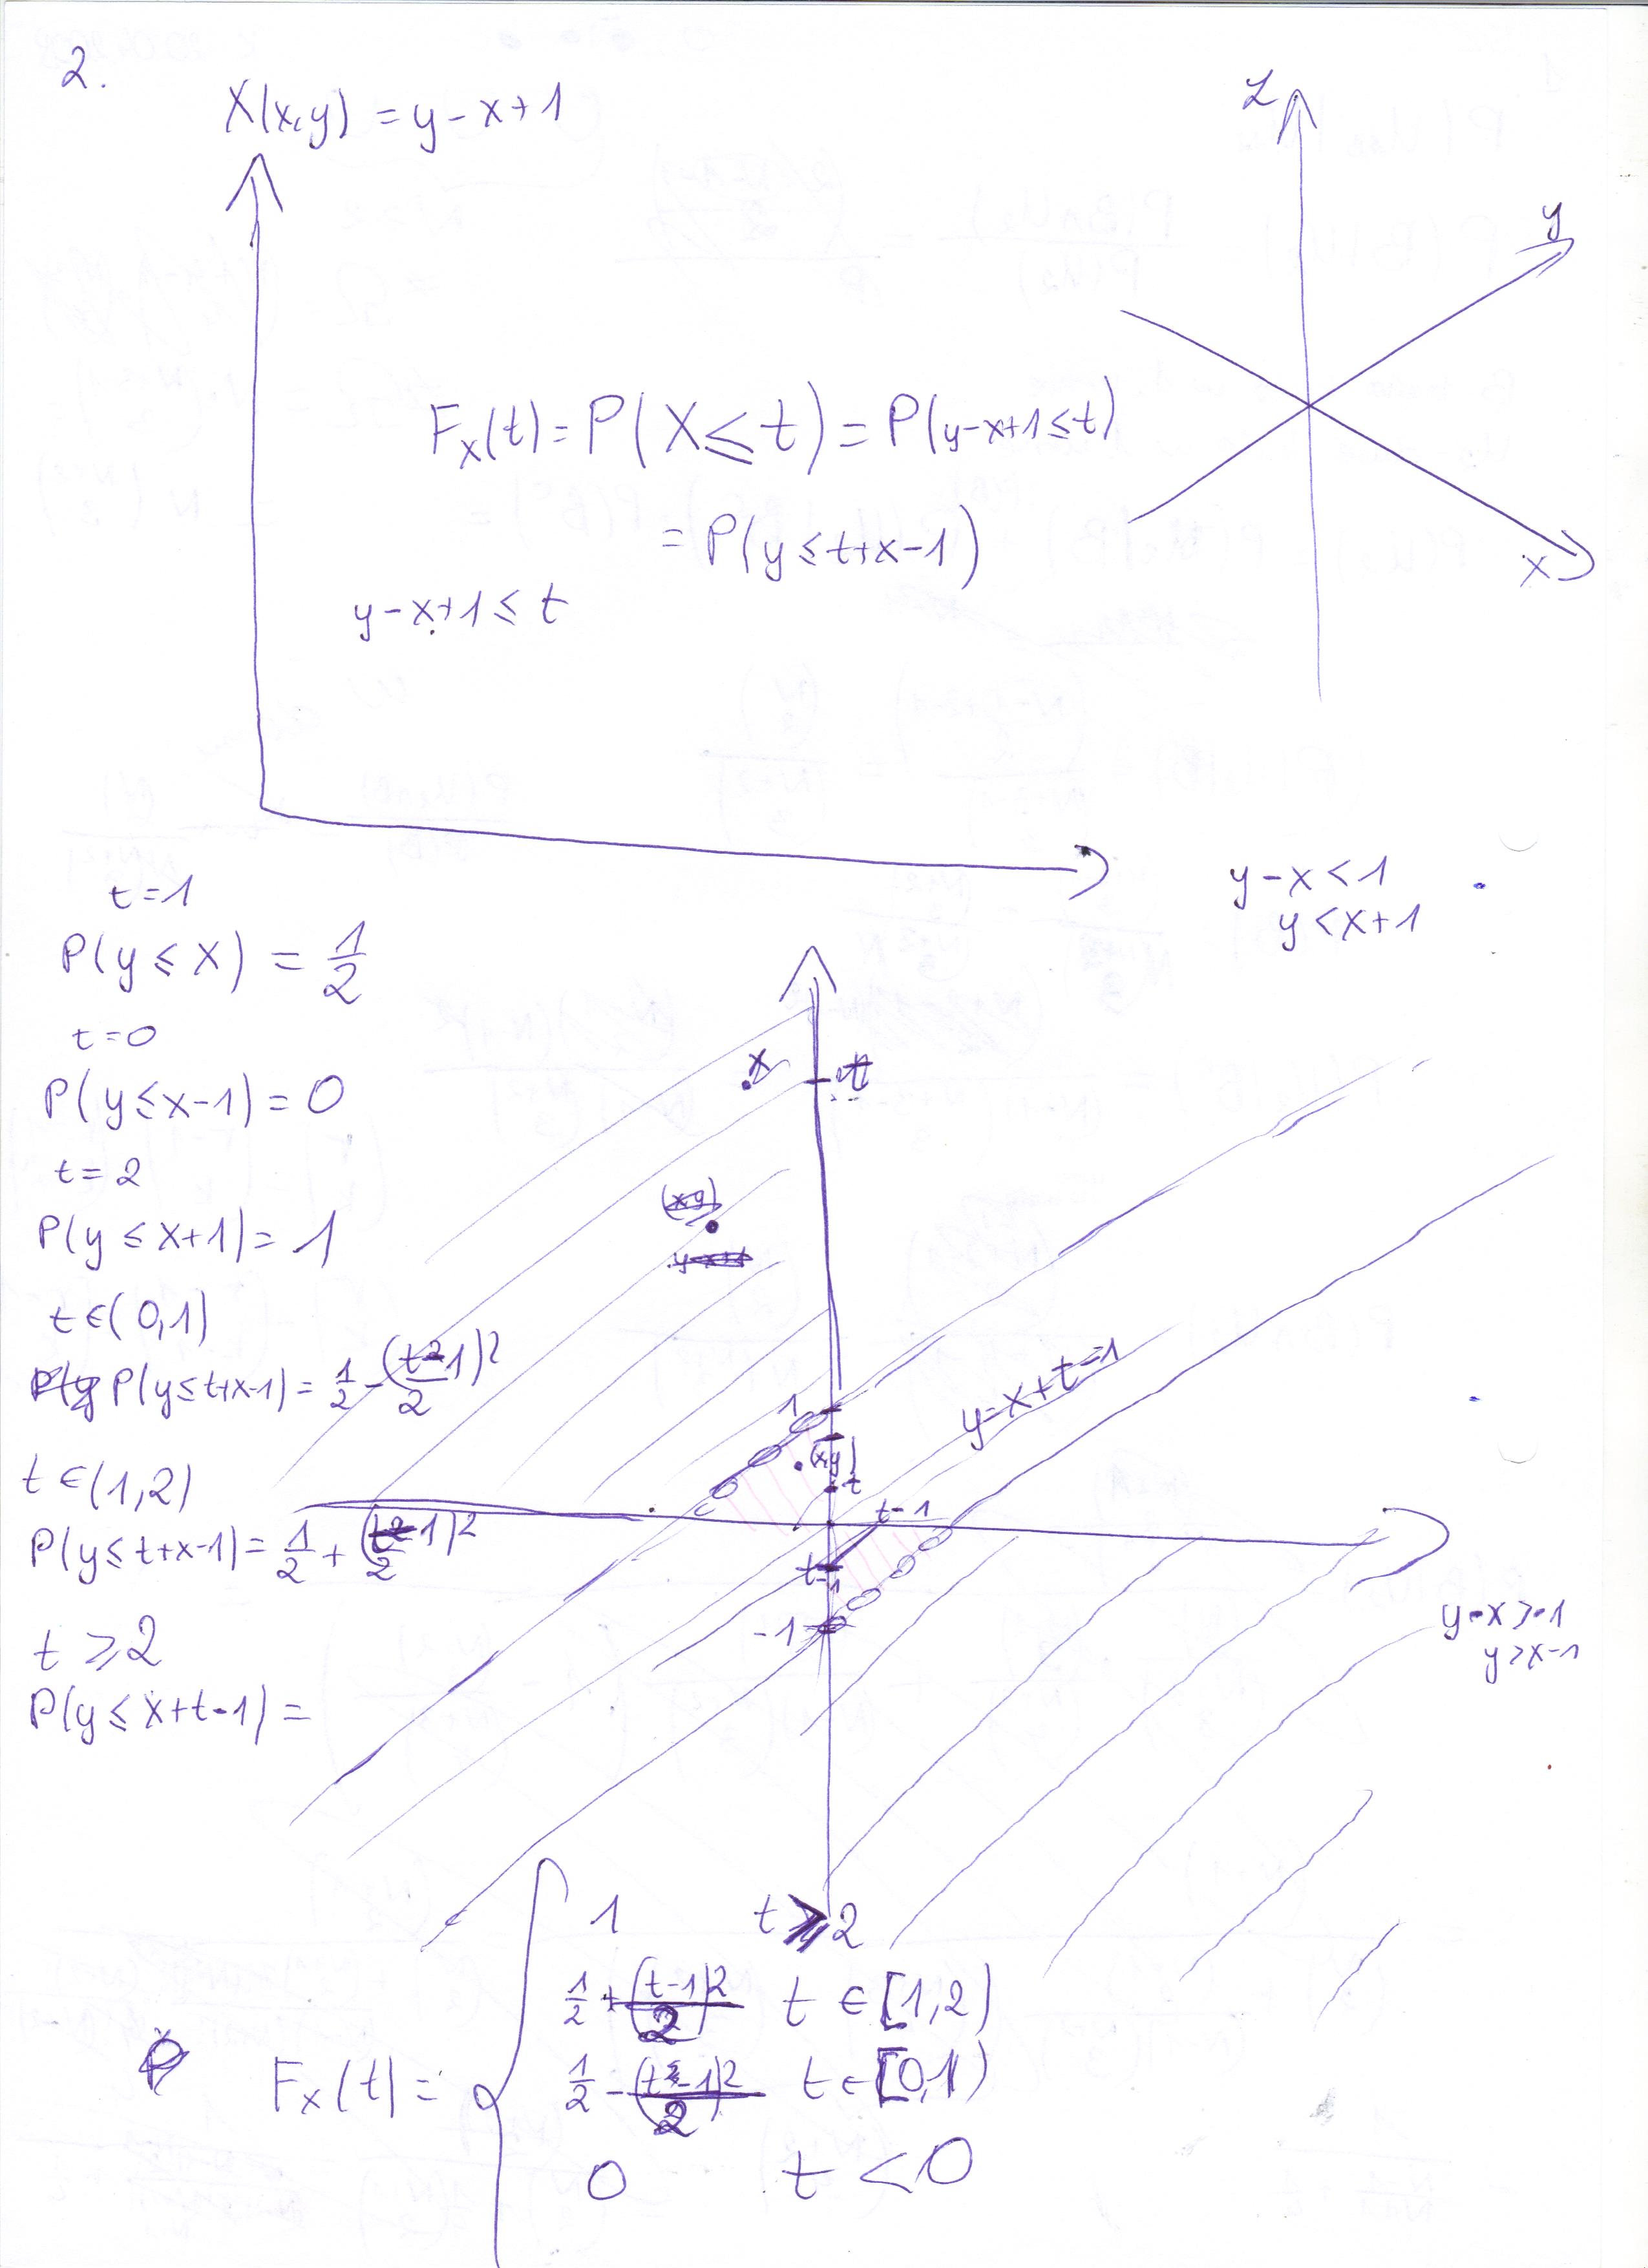 2.
X(x,y) = y-x+1
z
y
x
F_X(t) = P(X ≤ t) = P(y-x+1 ≤ t)
= P(y ≤ t+x-1)
y-x+1 ≤ t
t=1
P(y ≤ x) = 1/2
t=0
P(y ≤ x-1) = 0
t = 2
P(y ≤ x+1) = 1
t ∈ (0,1)
P(y ≤ t+x-1) = 1/2 - (t-1)²/2
t ∈ (1,2)
P(y ≤ t+x-1) = 1/2 + (t-1)²/2
t ≥ 2
P(y ≤ x+t-1) =
y-x < 1
y < x+1
x
(x,y)
y=x+t-1
1
(x,y)
t
t-1
t-1
-1
y-x > -1
y > x-1
F_X(t) =
1 t ≥ 2
1/2 + (t-1)²/2 t ∈ [1,2)
1/2 - (t-1)²/2 t ∈ [0,1)
0 t < 0